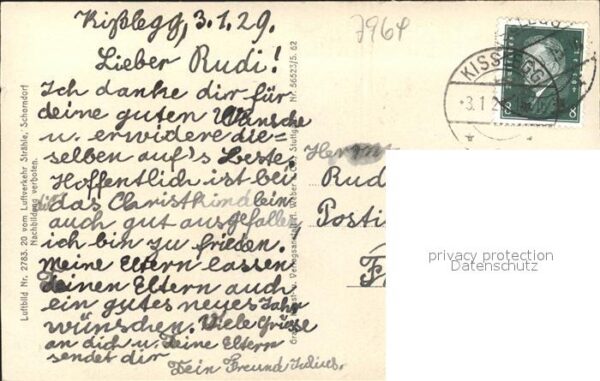 Kißlegg, 3.1.29.
7964
Lieber Rudi!
Ich danke dir für
deine guten Wünsche
u. erwidere die-
selben auf's Beste
Hoffentlich ist bei
dir das Christkindlein
auch gut ausgefallen
ich bin zu frieden.
Meine Eltern lassen
deinen Eltern auch
ein gutes neues Jahr
wünschen. Viele Grüsse
an dich u. Deine Eltern
sendet dir
Dein Freund Julius.
Luftbild Nr. 2783. 20 vom Luftverkehr Strähle, Schorndorf
Nachbildung verboten.
Nr. 56523/5. 62
KISSLEGG
3.1.2
8 8
Herrn
Rud
Posti
F
privacy protection
Datenschutz